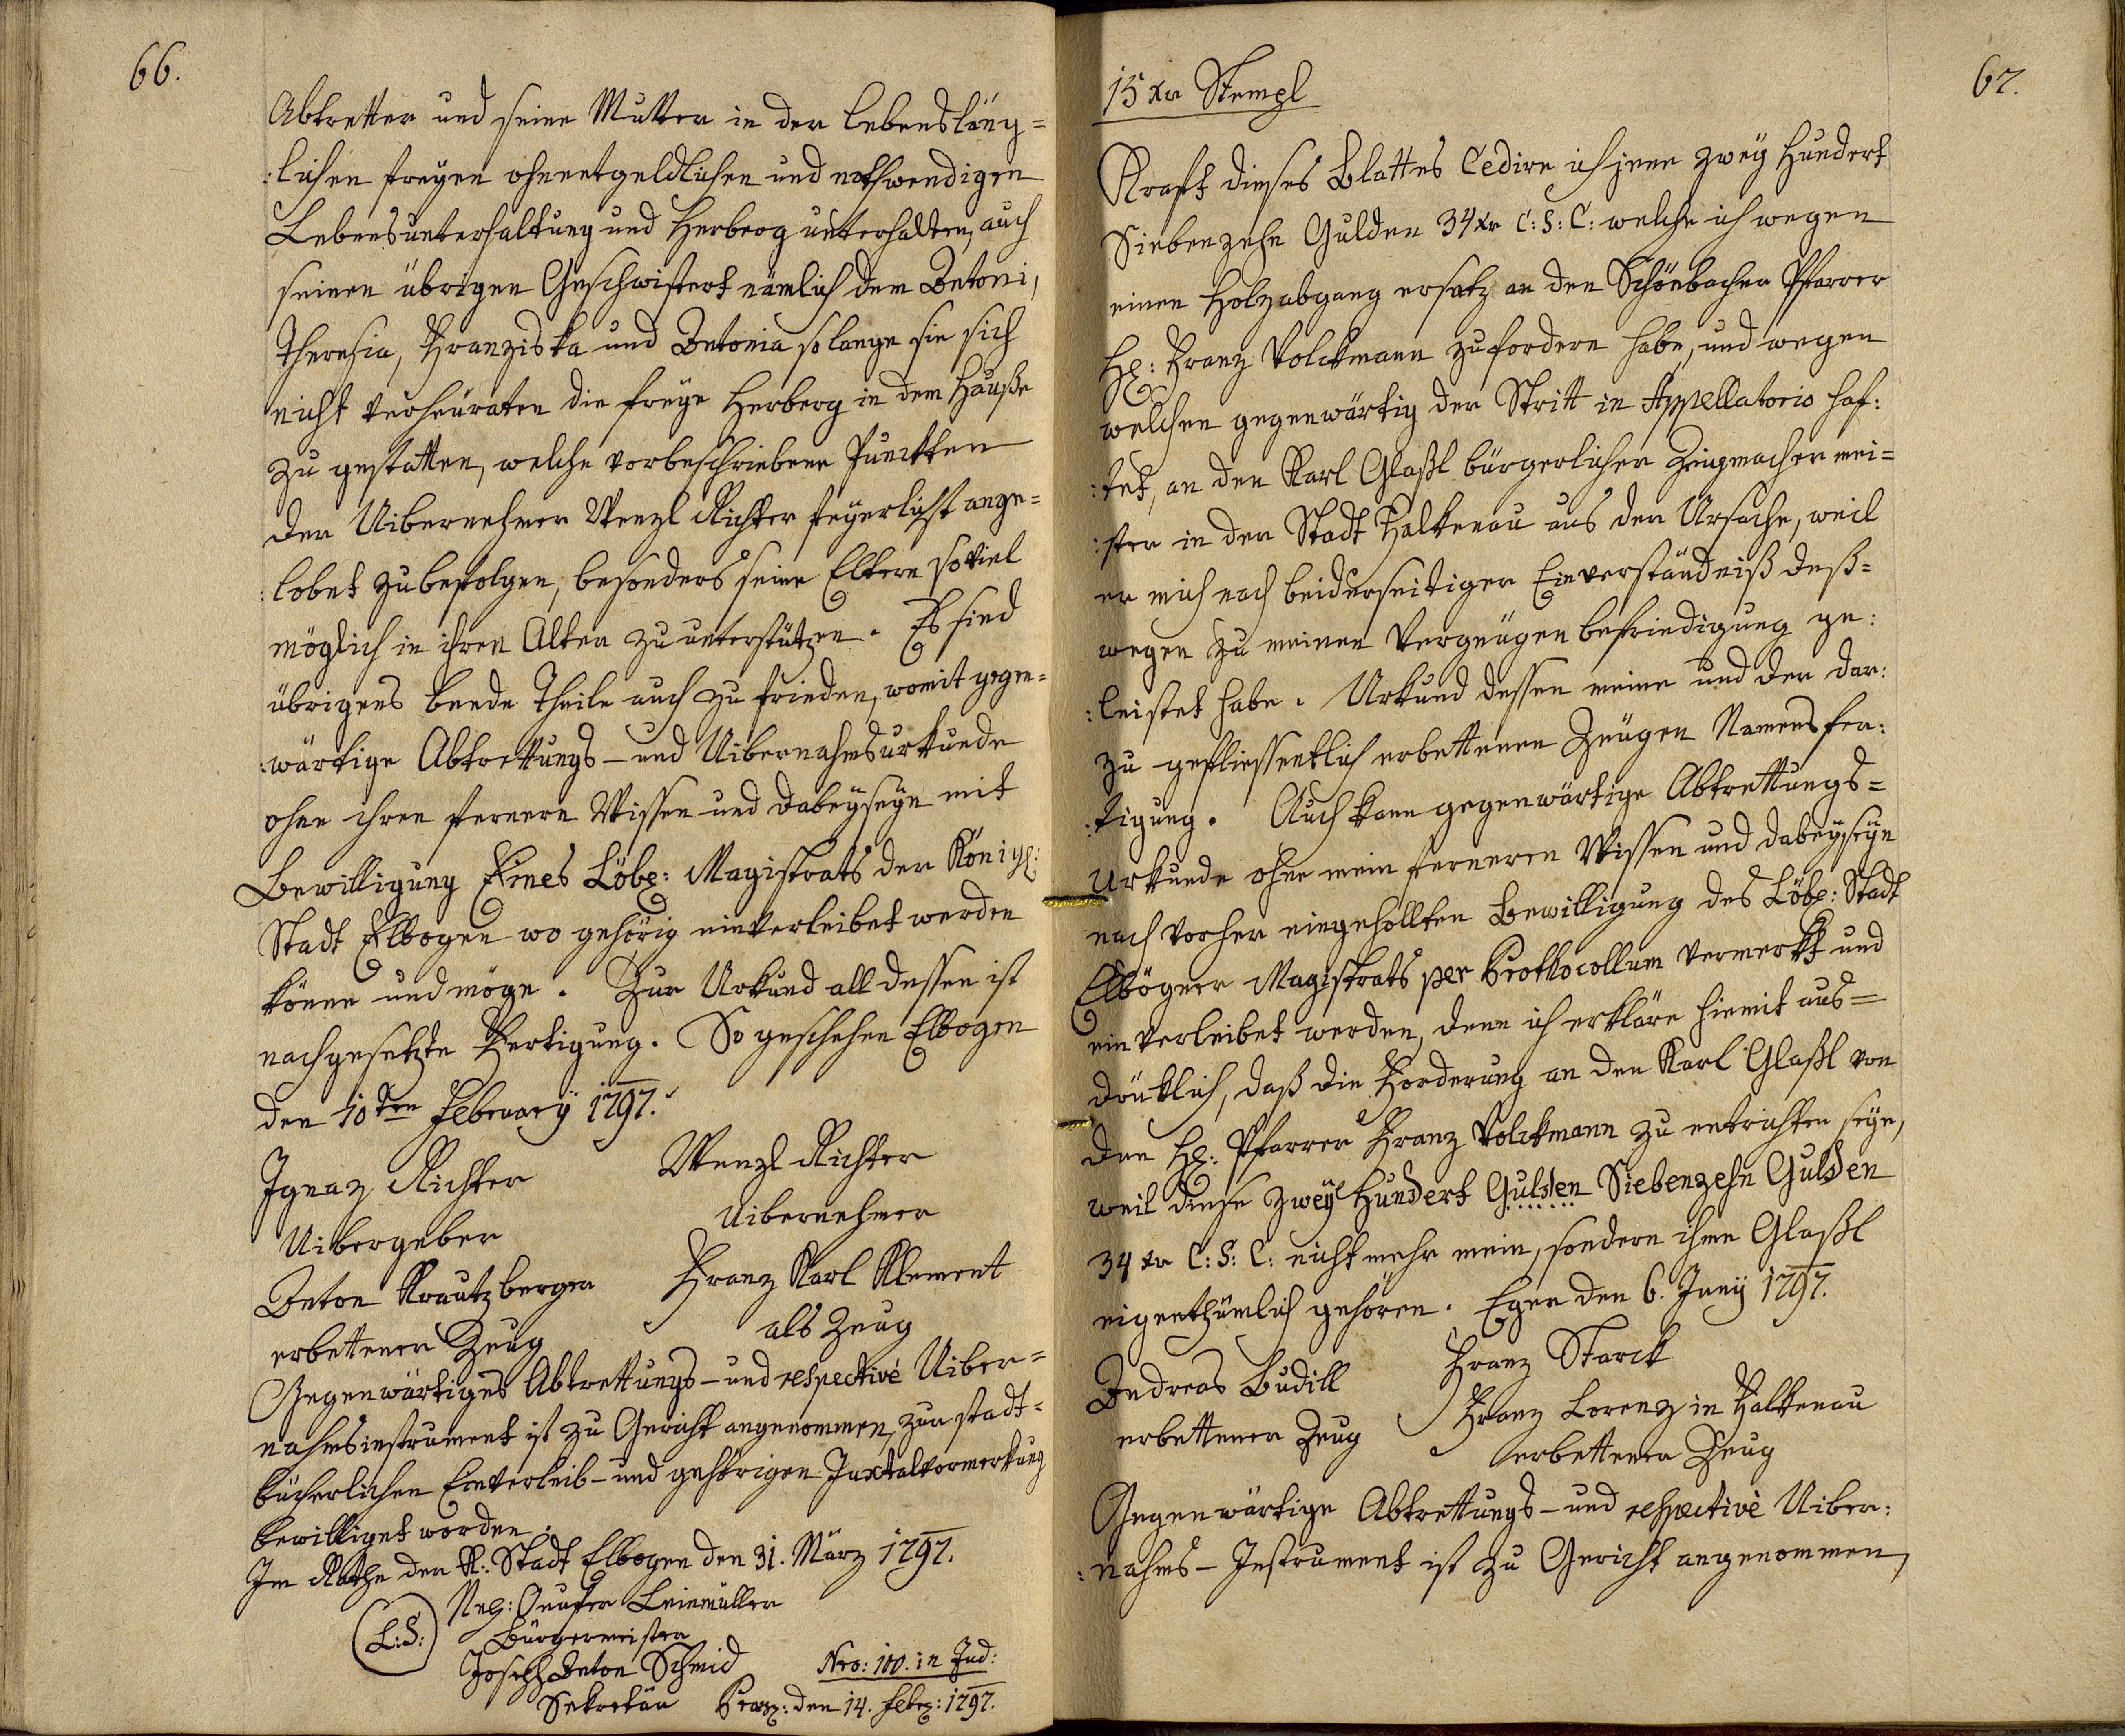 66.
Abtretter und seine Mutter in der lebensläng=
:lichen freyen ohnentgeldlichen und nothwendigen
Lebensunterhaltung und Herberg unterhalten, auch
seinen übrigen Geschwistert nämlich dem Antoni,
Theresia, Franziska und Antonia solange sie sich
nicht verheuraten die freye Herberg in dem Hauße
zu gestatten, welche vorbeschriebene Puncten
der Uibernehmer Wenzl Richter feyerlichst ange=
:lobet zubefolgen, besonders seine Eltern soviel
möglich in ihren Alter zu unterstützen. Es sind
übrigens beede Theile auch zu frieden, womit gegen=
:wärtige Abtrettungs- und Uibernahmsurkunde
ohne ihren fernern Wissen und dabeyseyn mit
Bewilligung Eines Löbl: Magistrats der Königl:
Stadt Elbogen wo gehörig einverleibet werden
könne und möge. Zur Urkund all dessen ist
nachgesetzte Fertigung. So geschehen Elbogen
den 10ten February 1797.
Ignaz Richter Wenzl Richter
Uibergeber Uibernehmer
Anton Krautzberger Franz Karl Klement
erbettener Zeug als Zeug
Gegenwärtiges Abtrettungs- und respectivé Uiber=
nahmsinstrument ist zu Gericht angenommen, zur stadt=
bücherlichen Einverleib- und gehörigen Juxtalvormerkung
bewilliget worden.
Im Rathe der K: Stadt Elbogen den 31. März 1797.
L:S: Leinmüller
Bürgermeister
Joseph Anton Schmid Nro: 100. in Jud:
Sekretär Praes: den 14. Febr: 1797.
67.
15 xr Stempl
Kraft dieses Blattes Cedire ich jene zwey Hundert
Siebenzehn Gulden 34 xr C: S: C: welche ich wegen
einen Holzabgang ersatz an den Schönbacher Pfarrer
H: Franz Volckmann zufordern habe, und wegen
welchen gegenwärtig der Stritt in Appellatorio haf:
:tet, an den Karl Glaßl bürgerlicher Zeugmacher mei=
:ster in der Stadt Falkenau aus der Ursache, weil
er mich nach beiderseitiger Einverständniß deß=
wegen zu meinen Vergnügen befriedigung ge:
:leistet habe. Urkund dessen meine und der dar:
zu gefliessentlich erbettenen Zeugen Namensfer:
:tigung. Auch kann gegenwärtige Abtrettungs=
Urkunde ohne mein ferneren Wissen und dabeyseyn
nach vorher eingehollten Bewilligung des Löbl: Stadt
Elbögner Magistrats per Prothocollum vermerkt und
einverleibet werden, denn ich erkläre hiemit aus=
drücklich, daß die Forderung an den Karl Glaßl von
den H: Pfarrer Franz Volckmann zu entrichten seye,
weil diese zwey Hundert Gulden Siebenzehn Gulden
34 xr C: S: C: nicht mehr mein, sondern ihme Glaßl
eigenthümlich gehören. Eger den 6. Juny 1797.
Andreas Budill Franz Starck
erbettener Zeug Franz Lorenz in Falkenau
erbettener Zeug
Gegenwärtige Abtrettungs- und respectivé Uiber:
:nahms-Instrument ist zu Gericht angenommen,